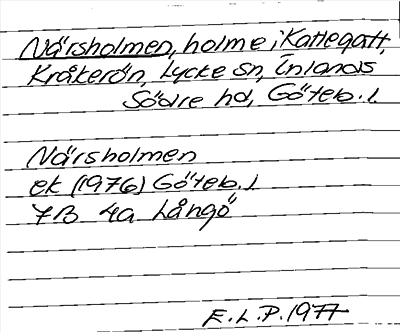 Närsholmen, holme i Kattegatt,
Kråkerön, Lycke sn, Inlands
Södre hd, Göteb. l.
Närsholmen
ek (1976) Göteb. l
7B 4a Långö
E. L. P. 1977